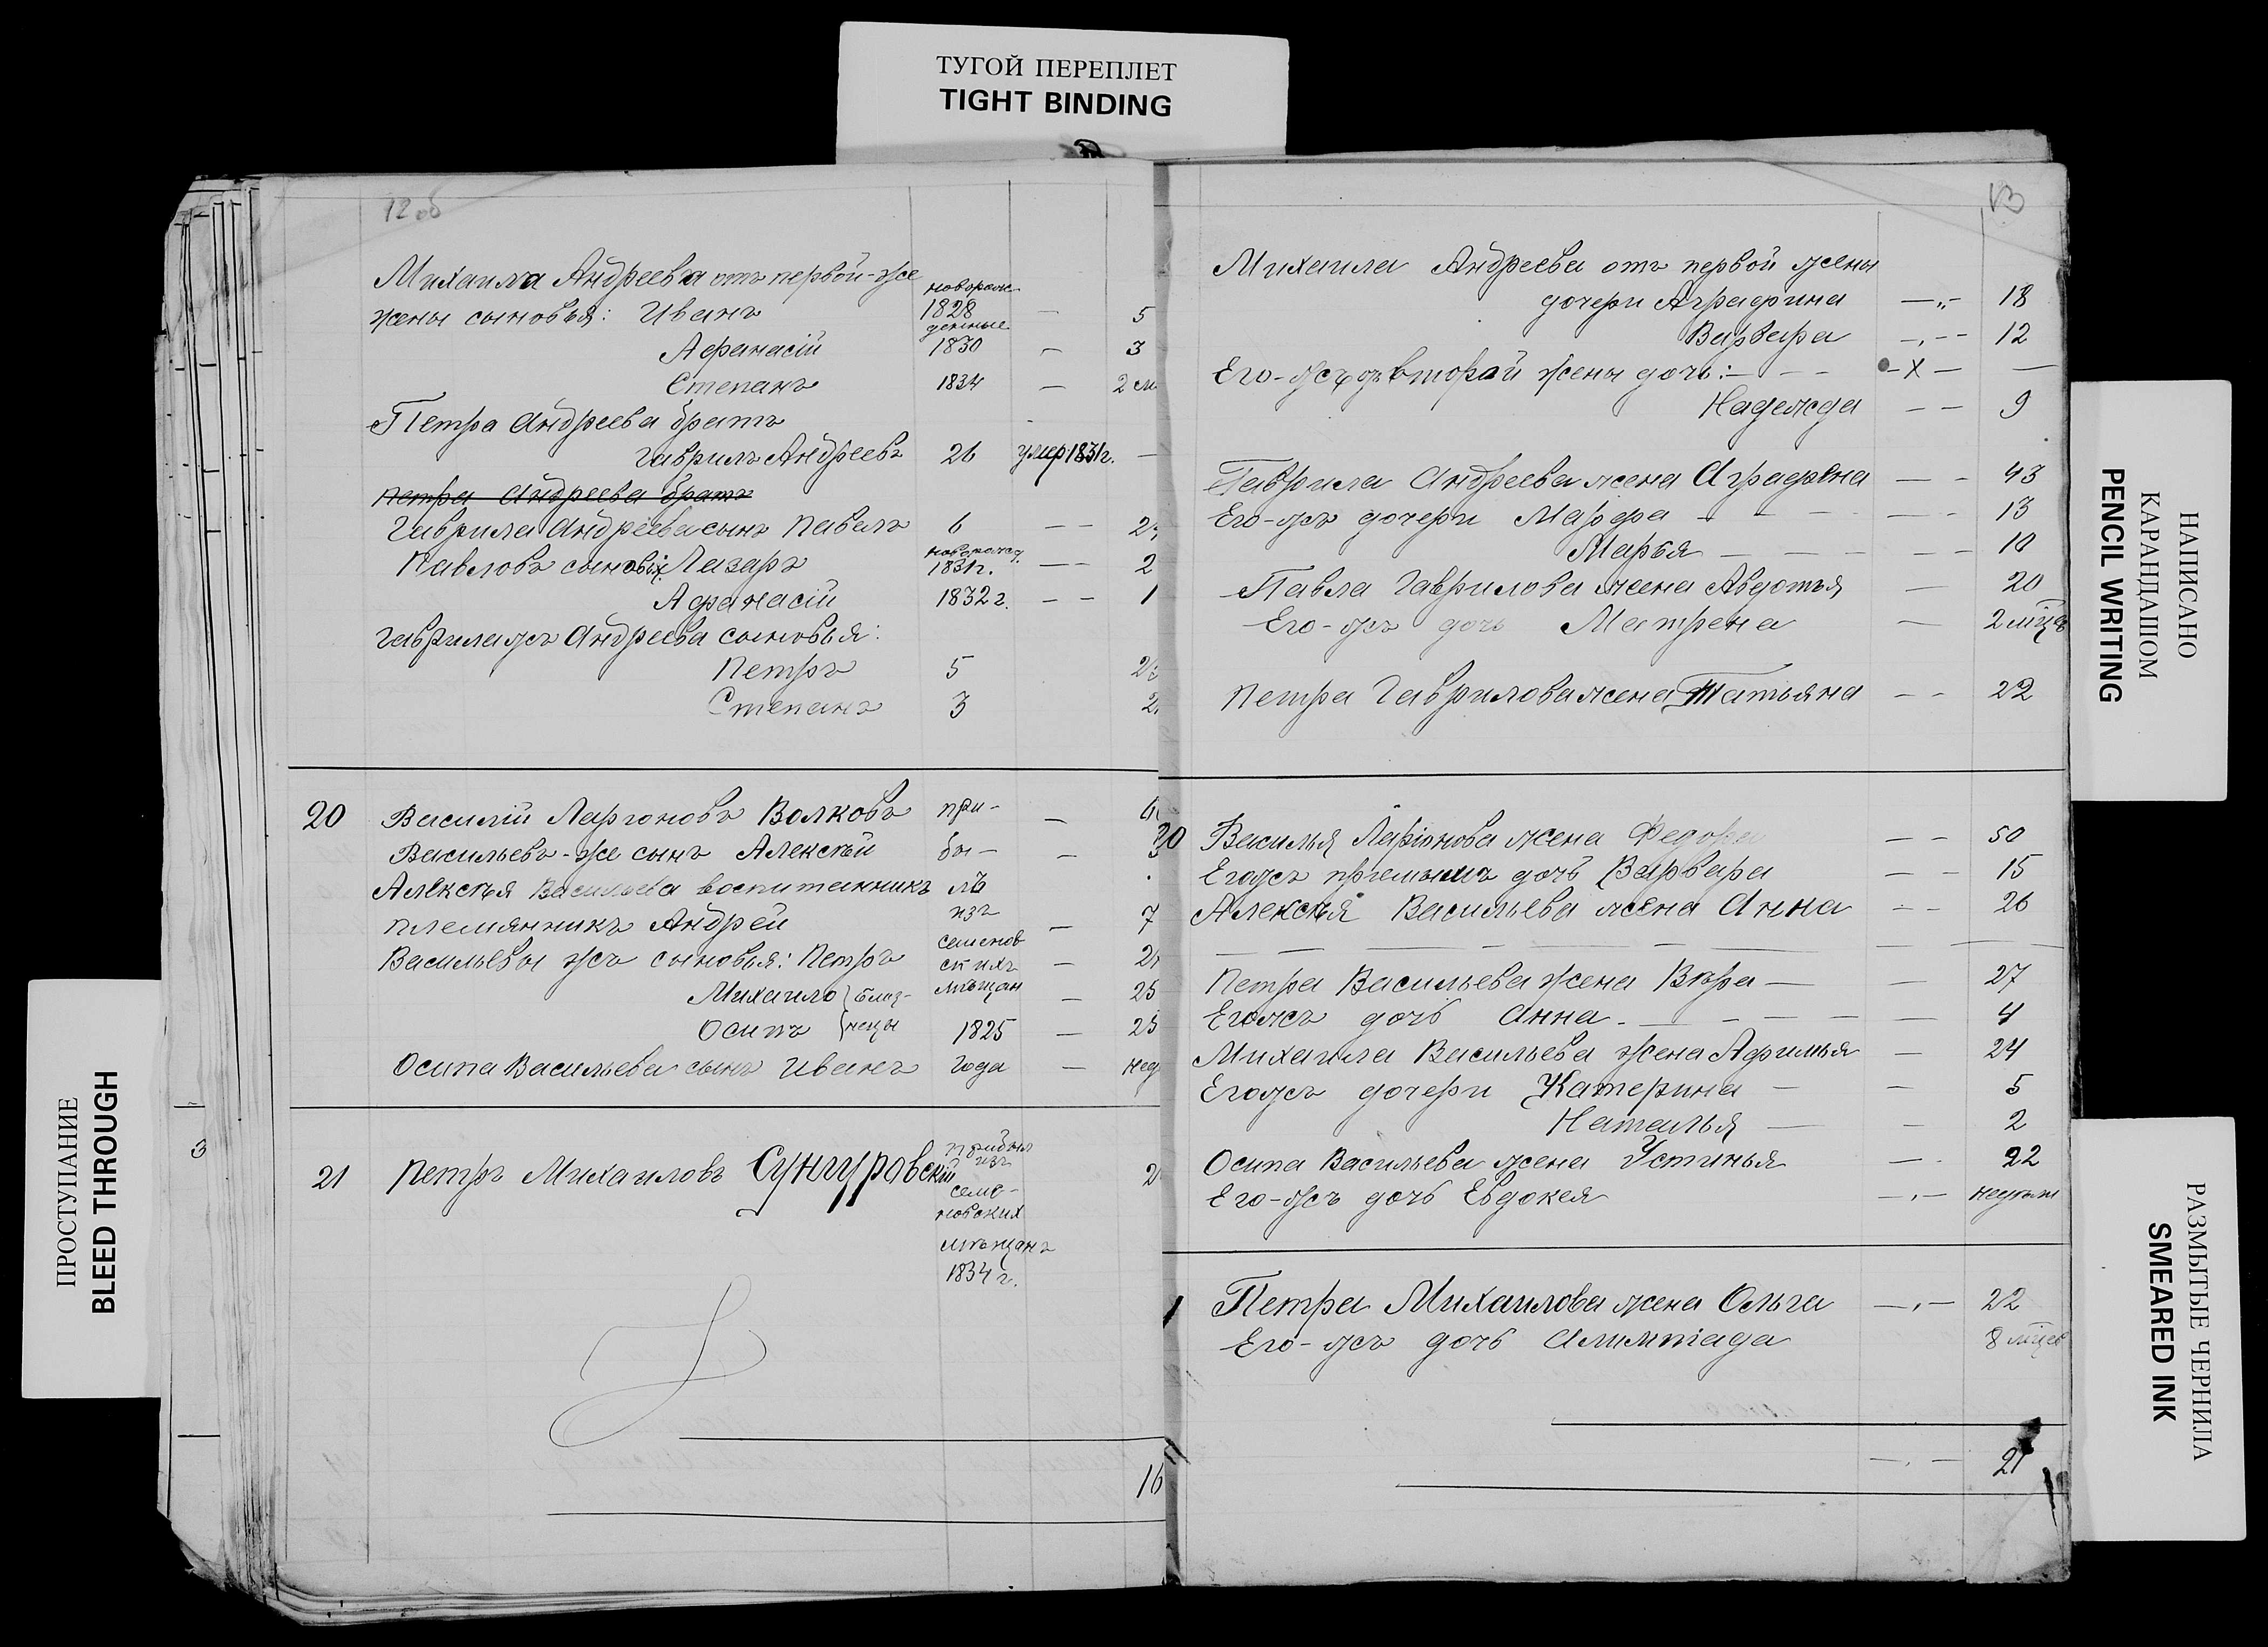 ТУГОЙ ПЕРЕПЛЕТ
TIGHT BINDING
12 об
Михаила Андреева отъ первой-же
жены сыновья: Иванъ новорож- 1828 — 5
денные
Афанасій 1830 — 3
Степанъ 1834 — 2 м
Петра Андреева братъ
Гаврилъ Андреевъ 26 умер 1831 г. —
Петра Андреева братъ
Гаврила Андреева сынъ Павелъ 6 — —
Павловъ сыновья Лазарь новорожд. 1831 г. — — 2
Афанасій 1832 г. — — 1
Гаврила жъ Андреева сыновья:
Петръ 5
Степанъ 3
20 Василій Ларіоновъ Волковъ при- —
Васильевъ-же сынъ Алексѣй бы- —
Алексѣя Васильева воспитанникъ лъ
племянникъ Андрей изъ — 7
Васильевы жъ сыновья: Петръ семеновскихъ —
Михаило } близ- мѣщан — 25
Осипъ { нецы 1825 — 25
Осипа Васильева сынъ Иванъ года — нед
21 Петръ Михаиловъ Сунгуровскій прибыл
изъ
семе-
новских
мѣщанъ
1834 г.
16
3
13
Михаила Андреева отъ первой жены
дочери Аграфина —„— 18
Варвара —.— — 12
Его-жъ отъ второй жены дочь: — — — — х — —
Надежда — — 9
Гаврила Андреева жена Аграфена — — 43
Его-жъ дочери Марфа — — — — — 13
Марья — — — — — 10
Павла Гаврилова жена Авдотья — 20
Его-жъ дочь Матрена — 2 мѣцв
Петра Гаврилова жена Татьяна — — 22
20 Василья Ларіонова жена Федора — — 50
Егожъ пріемышъ дочь Варвара — — 15
Алексѣя Васильева жена Анна — — 26
— — — — — — — — —
Петра Васильева жена Вѣра — — 27
Егожъ дочь Анна. — — — — — 4
Михаила Васильева жена Афимья — 24
Егожъ дочери Катерина — — 5
Наталья — — 2
Осипа Васильева жена Устинья — 22
Его-жъ дочь Евдокея —.— недѣли
Петра Михаилова жена Ольга —.— 22
Его-жъ дочь Алимпіада 8 мѣцев
—.— 21
ПРОСТУПАНИЕ
BLEED THROUGH
НАПИСАНО
КАРАНДАШОМ
PENCIL WRITING
РАЗМЫТЫЕ ЧЕРНИЛА
SMEARED INK